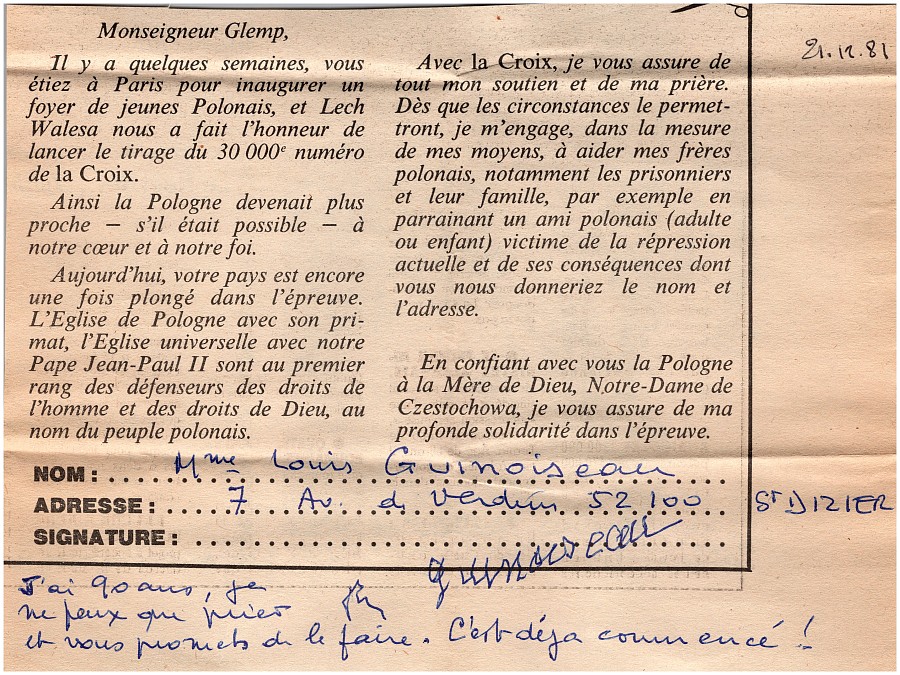 21.12.81
Monseigneur Glemp,
Il y a quelques semaines, vous
étiez à Paris pour inaugurer un
foyer de jeunes Polonais, et Lech
Walesa nous a fait l'honneur de
lancer le tirage du 30 000e numéro
de la Croix.
Ainsi la Pologne devenait plus
proche – s'il était possible – à
notre cœur et à notre foi.
Aujourd'hui, votre pays est encore
une fois plongé dans l'épreuve.
L'Eglise de Pologne avec son pri-
mat, l'Eglise universelle avec notre
Pape Jean-Paul II sont au premier
rang des défenseurs des droits de
l'homme et des droits de Dieu, au
nom du peuple polonais.
Avec la Croix, je vous assure de
tout mon soutien et de ma prière.
Dès que les circonstances le permet-
tront, je m'engage, dans la mesure
de mes moyens, à aider mes frères
polonais, notamment les prisonniers
et leur famille, par exemple en
parrainant un ami polonais (adulte
ou enfant) victime de la répression
actuelle et de ses conséquences dont
vous nous donneriez le nom et
l'adresse.
En confiant avec vous la Pologne
à la Mère de Dieu, Notre-Dame de
Czestochowa, je vous assure de ma
profonde solidarité dans l'épreuve.
NOM : Mme Louis Guinoiseau
ADRESSE : 7 Av. de Verdun 52100 St DIZIER
SIGNATURE : Guinoiseau
J'ai 90 ans, je
ne peux que prier
et vous promets de le faire. C'est déja commencé !